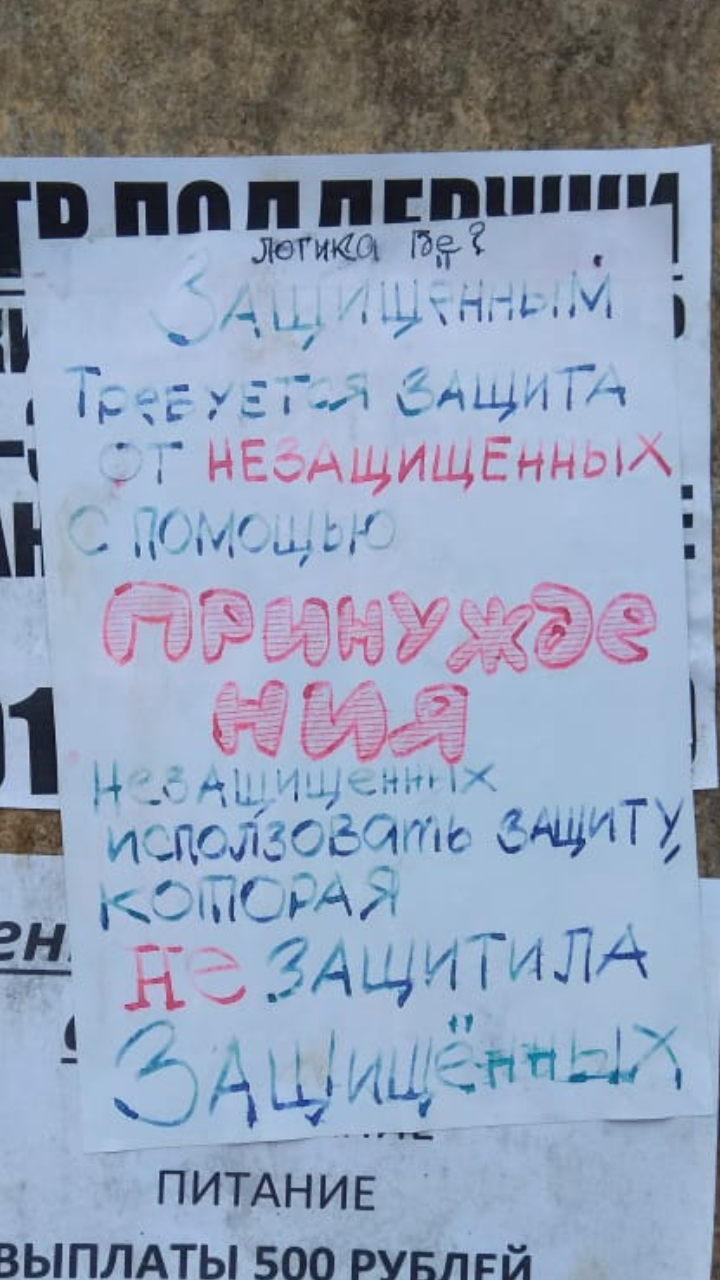 ТР ПОДДЕРЖКИ
логика где?
Защищённым
Требуется защита
от незащищенных
с помощью
принужде
ния
Незащищенных
исползовать защиту,
которая
не защитила
Защищённых
ПИТАНИЕ
ВЫПЛАТЫ 500 РУБЛЕЙ